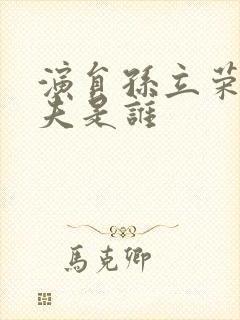 演員孫立荣
夫是誰
馬克卿